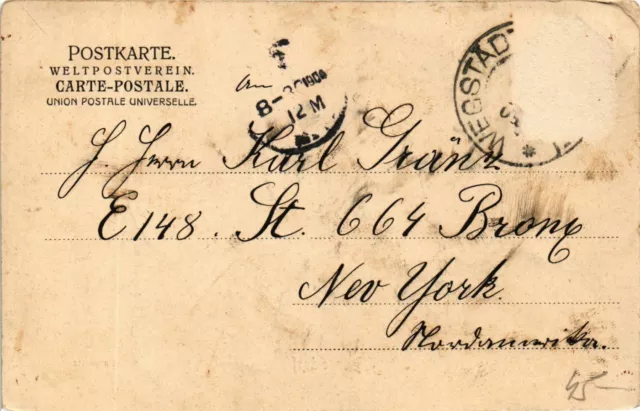 POSTKARTE.
WELTPOSTVEREIN.
CARTE-POSTALE.
UNION POSTALE UNIVERSELLE.
WEGSTÄDT
an
8-30 1904
12 M
H. Herrn Karl Gränz
E 148. St. 664 Bronx
Nev York.
Nordamerika.
45—